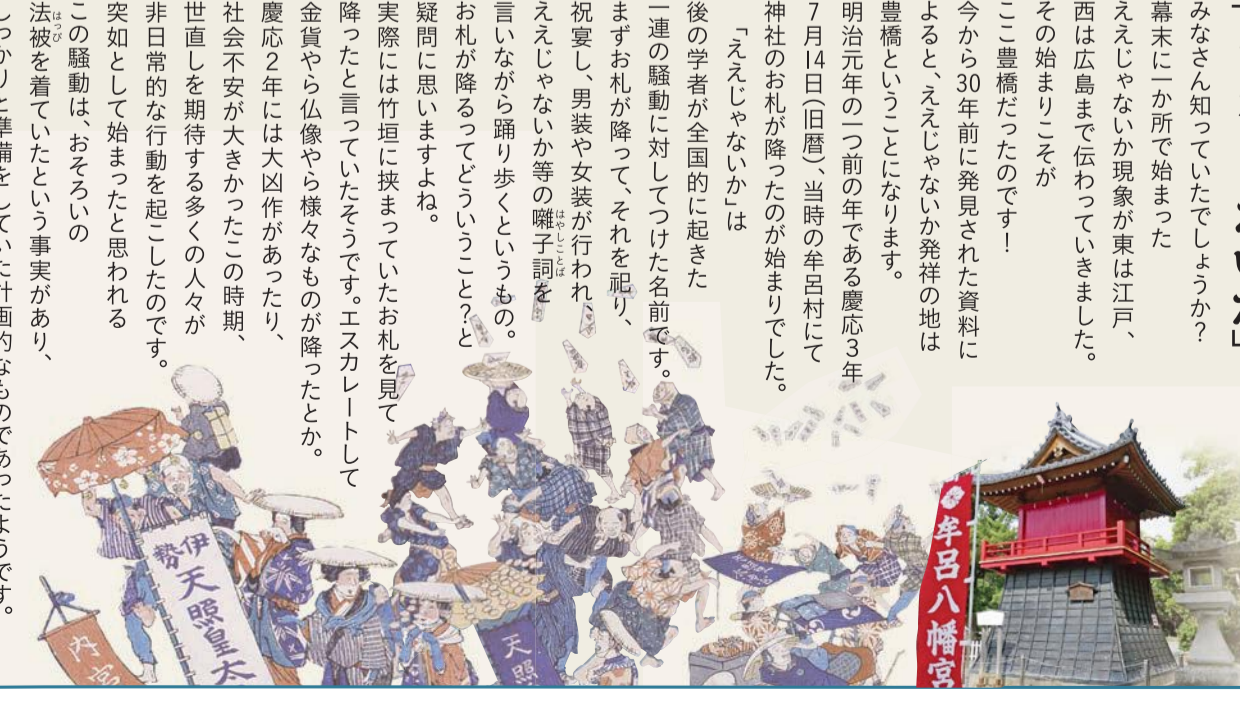 みなさん知っていたでしょうか？
幕末に一か所で始まった
ええじゃないか現象が東は江戸、
西は広島まで伝わっていきました。
その始まりこそが
ここ豊橋だったのです！
今から30年前に発見された資料に
よると、ええじゃないか発祥の地は
豊橋ということになります。
明治元年の一つ前の年である慶応３年
７月14日（旧暦）、当時の牟呂村にて
神社のお札が降ったのが始まりでした。
「ええじゃないか」は
後の学者が全国的に起きた
一連の騒動に対してつけた名前です。
まずお札が降って、それを祀り、
祝宴し、男装や女装が行われ
ええじゃないか等の囃子詞を
はやしことば
言いながら踊り歩くというもの。
お札が降るってどういうこと？と
疑問に思いますよね。
実際には竹垣に挟まっていたお札を見て
降ったと言っていたそうです。エスカレートして
金貨やら仏像やら様々なものが降ったとか。
慶応２年には大凶作があったり、
社会不安が大きかったこの時期、
世直しを期待する多くの人々が
非日常的な行動を起こしたのです。
突如として始まったと思われる
この騒動は、おそろいの
法被を着ていたという事実があり、
はっぴ
しっかりと準備をしていた計画的なものであったようです。
牟呂八幡宮
伊勢
天照皇太
内宮
天照